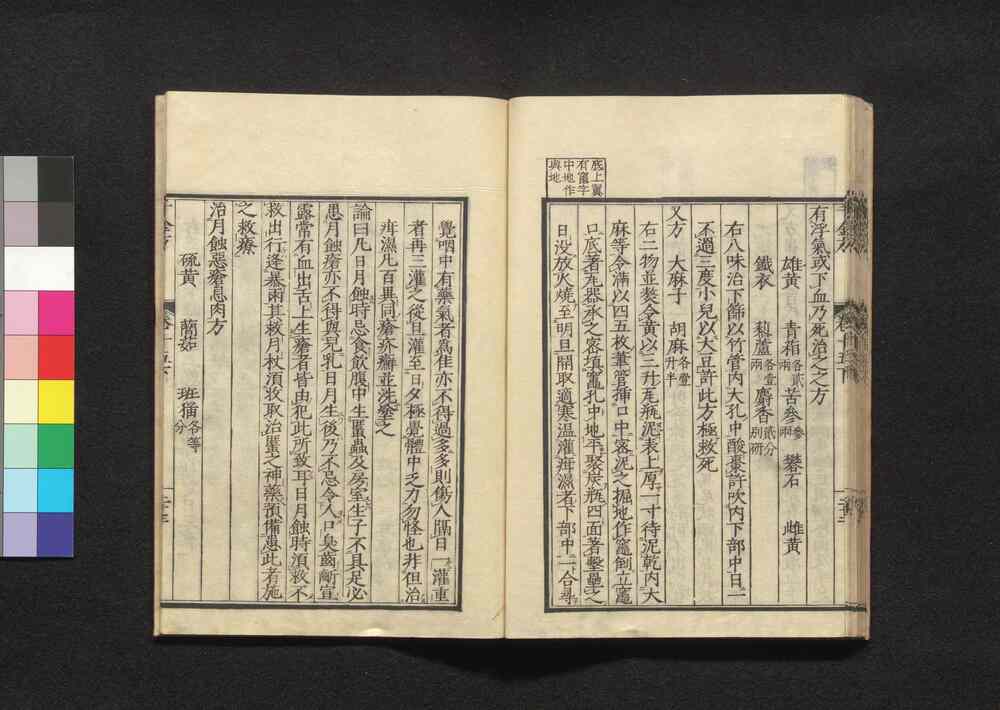 底上冀
有竈字
中地作
與地
有浮氣或下血乃死治之之方
雄黃 青葙各貳兩 苦參參兩 礬石 雌黃
鐵衣 藜蘆各壹兩 麝香貳分別研
右八味治下篩以竹管內大孔中酸棗許吹內下部中日一
不過三度小兒以大豆許此方極救死
又方 大麻子 胡麻各壹升半
右二物並熬令黃以三升瓦瓶泥表上厚一寸待泥乾內大
麻等令滿以四五枚葦管插口中密泥之掘地作竈倒立竈
口底著瓦器承之密塡竈孔中地平聚炭瓶四面著墼壘之
日没放火燒至明旦開取適寒溫灌疳濕者下部中一合尋
覺咽中有藥氣者爲佳亦不得過多多則傷人隔日一灌重
者再三灌之從旦灌至日夕極覺體中乏力勿怪也非但治
疳濕凡百異同瘡疥癬並洗塗之
論曰凡日月蝕時忌食飲腹中生䘌蟲及房室生子不具足必
患月蝕瘡亦不得與兒乳日月生後乃不忌令人口臭齒齗宣
露常有血出舌上生瘡者皆由犯此所致耳日月蝕時湏救不
救出行逢暴雨其救月杖湏收取治䘌之神藥預備患此者施
之救療
治月蝕惡瘡息肉方
硫黃 䕡茹 班猫各等分